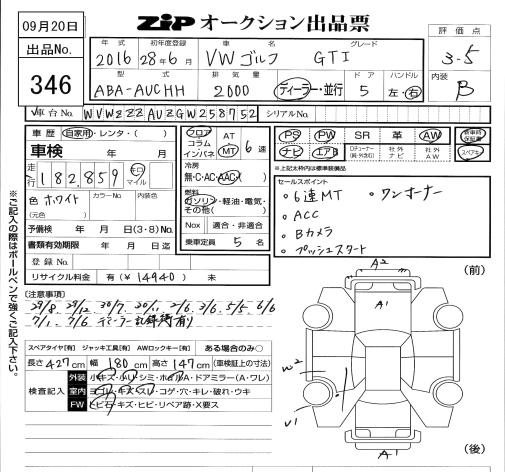 09月20日
ZIP オークション出品票
出品No.
346
年式 初年度登録 車名 グレード
2016 28年6月 VWゴルフ GTI
型式 排気量 ドア ハンドル
ABA-AUCHH 2000 ディーラー・並行 5 左・右
評価点
3.5
内装
B
車台No. WVWZZZAUZGW258752 シリアルNo.
車歴 自家用・レンタ・( )
車検 年 月
走行 182,859 キロ マイル
色 ホワイト カラーNo. 内装色
(元色 )
予備検 年 月 日(3・8)No.
書類有効期限 年 月 日迄
登録No.
リサイクル料金 有(¥14940) 未
フロア コラム インパネ AT MT 6速
冷房
無・C・AC・AAC
燃料
ガソリン・軽油・電気・その他( )
Nox 適合・非適合
乗車定員 5名
PS PW SR 革 AW 新車時保証書
ナビ エアB Dチューナー 社外ナビ 社外AW スペアキー
※上記太枠内は標準装備品
セールスポイント
・6速MT ・ワンオーナー
・ACC
・Bカメラ
・プッシュスタート
[注意事項]
29/8. 29/12 30/7. 30/11. 2/6 3/6. 5/5 6/6
7/1. 7/6 ディーラー記録簿有り
スペアタイヤ[有] ジャッキ工具[有] AWロックキー[有] ある場合のみ○
長さ 427cm 幅 180cm 高さ 147cm (車検証上の寸法)
検査記入
外装 小キズ・小凹・シミ・ホイルA・ドアミラー(A・ワレ)
室内 ヨゴレ・キズ・スレ・コゲ・穴・キレ・破れ・ウキ
FW ヒビ石・キズ・ヒビ・リペア跡・X要ス
※ご記入の際はボールペンで強くご記入下さい。
(前)
A2
A1
W2
U1
A1
(後)